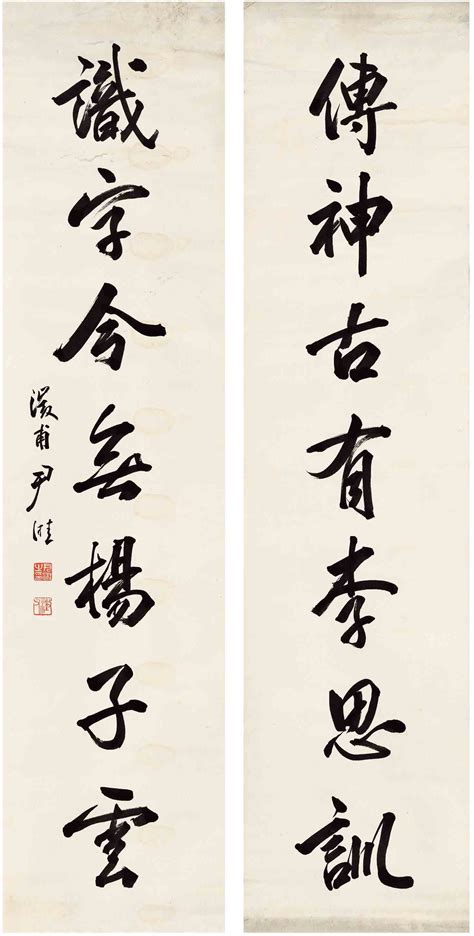 傳神古有李思訓
識字今無楊子雲
尹